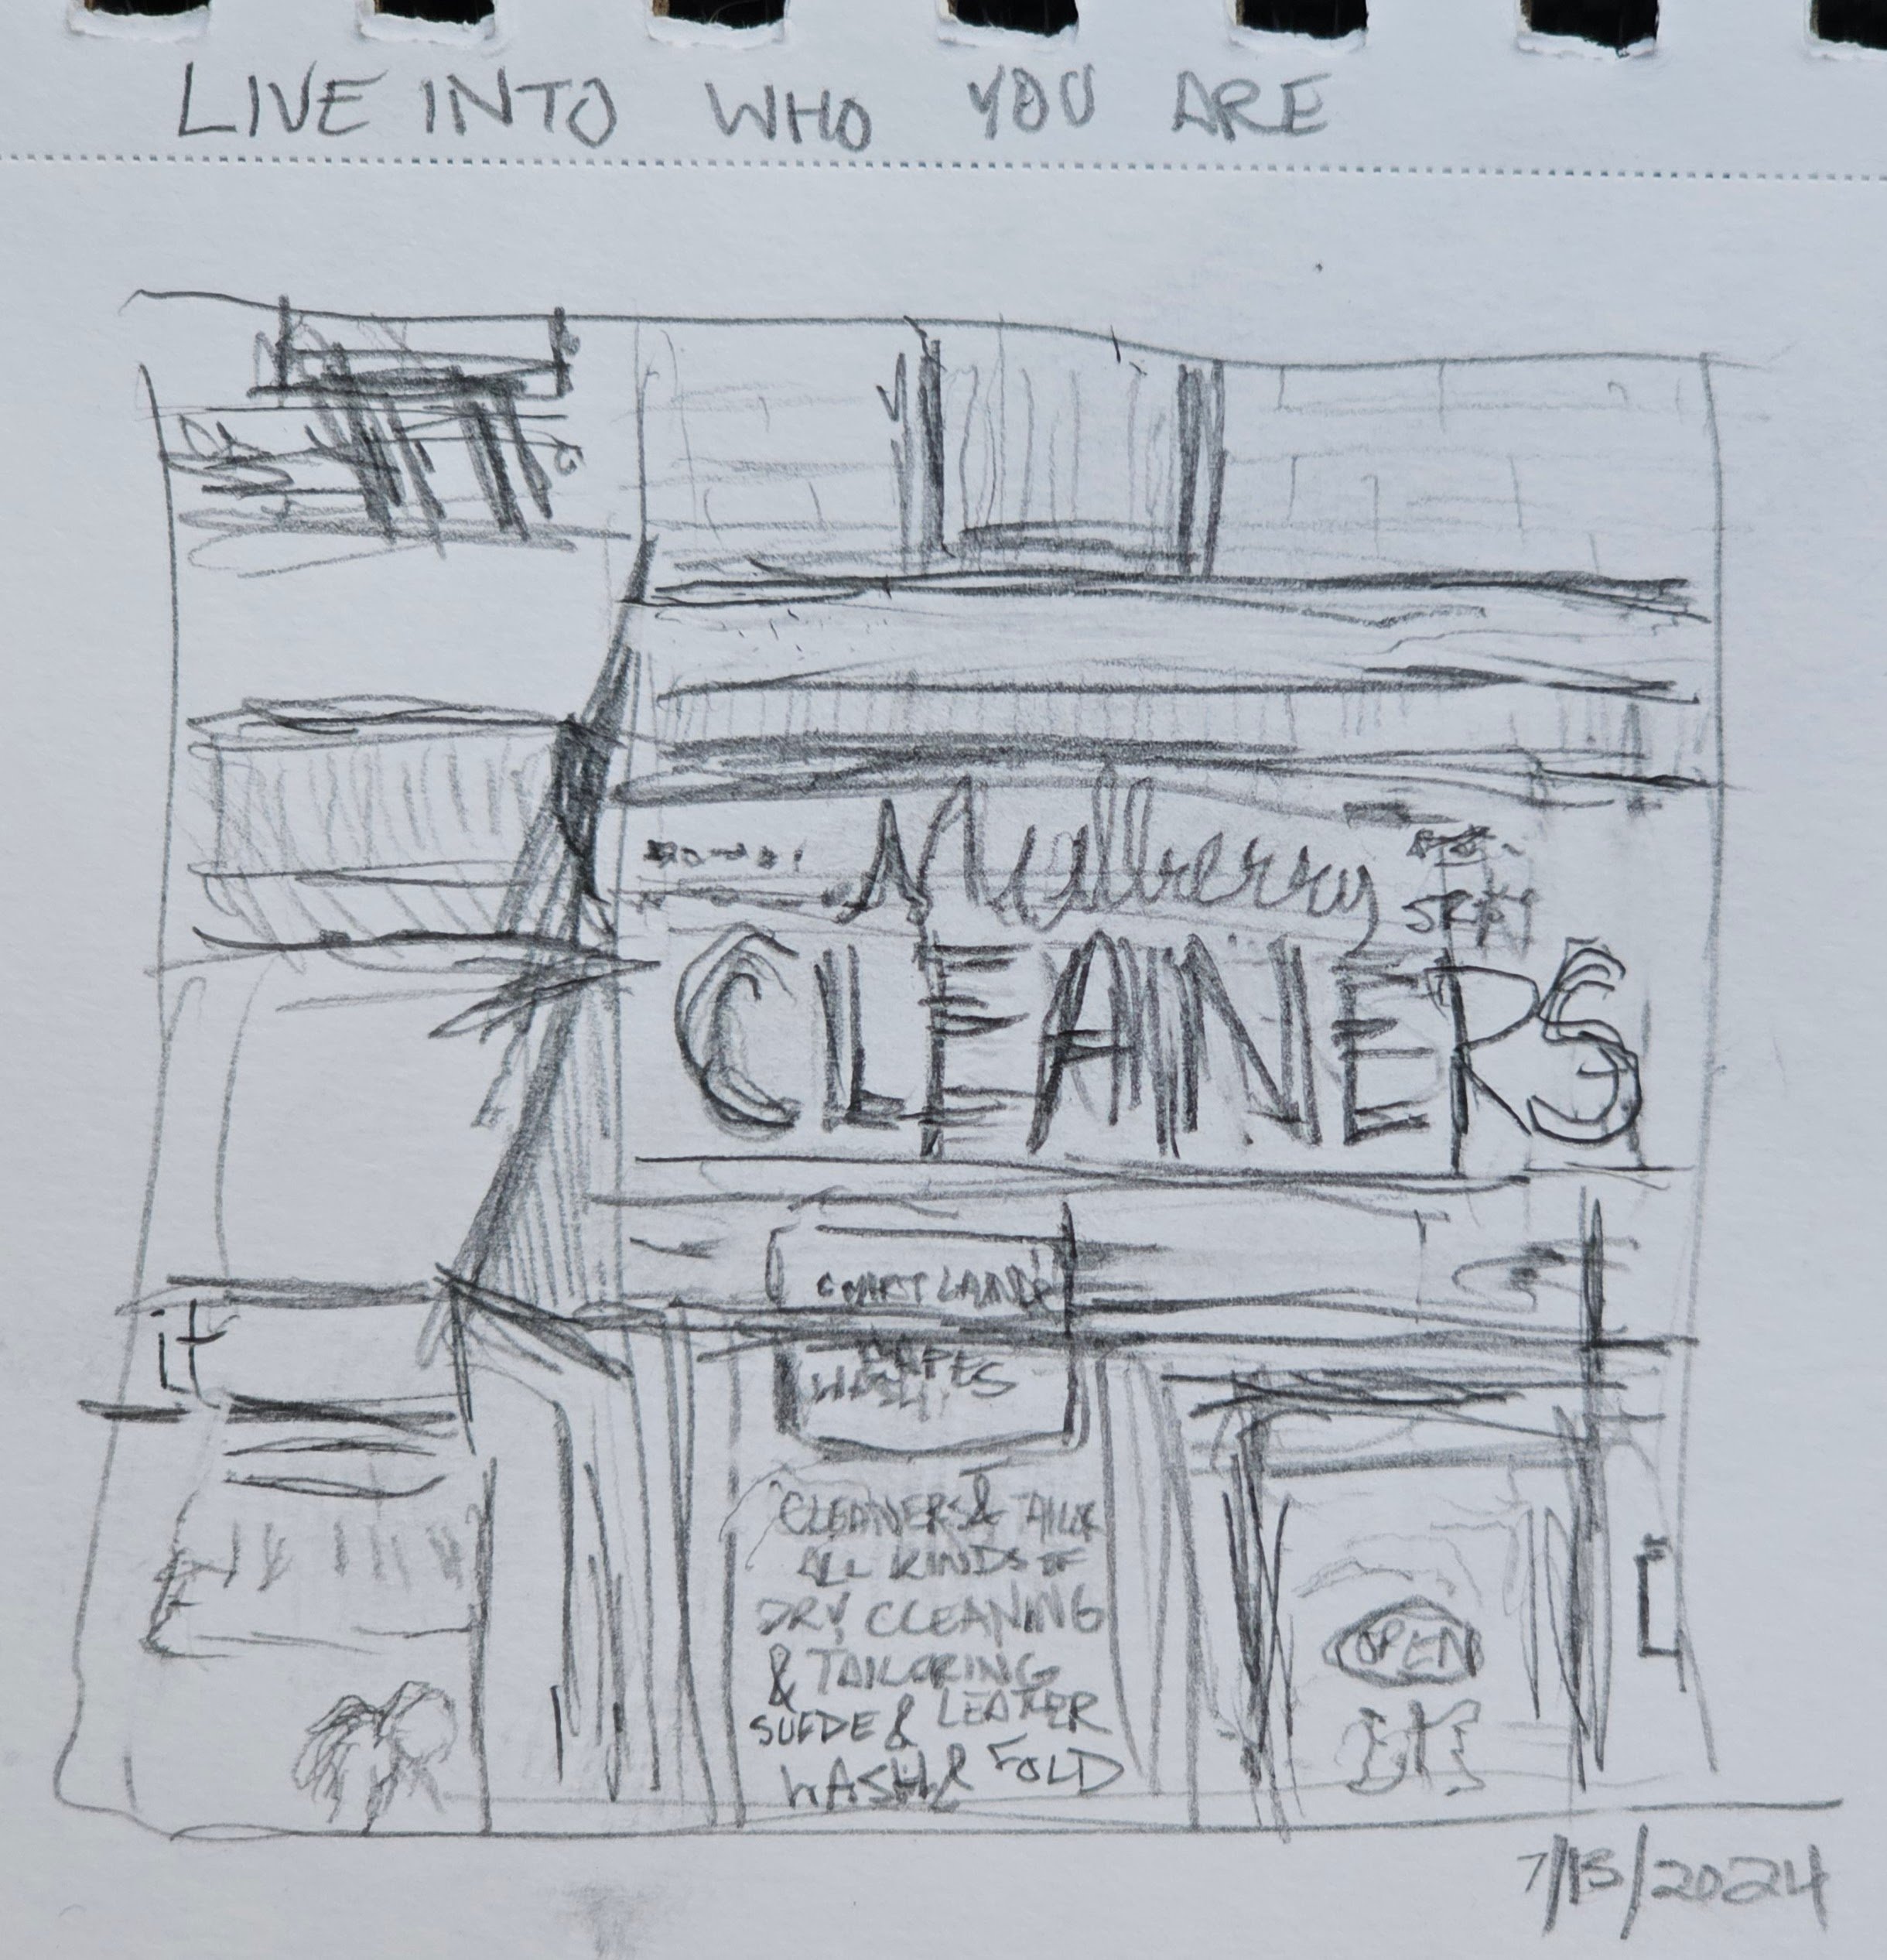 LIVE INTO WHO YOU ARE
Mulberry
CLEANERS
it
CLEANERS & TAILOR
ALL KINDS OF
DRY CLEANING
& TAILORING
SUEDE & LEATER
WASH & FOLD
OPEN
7/13/2024